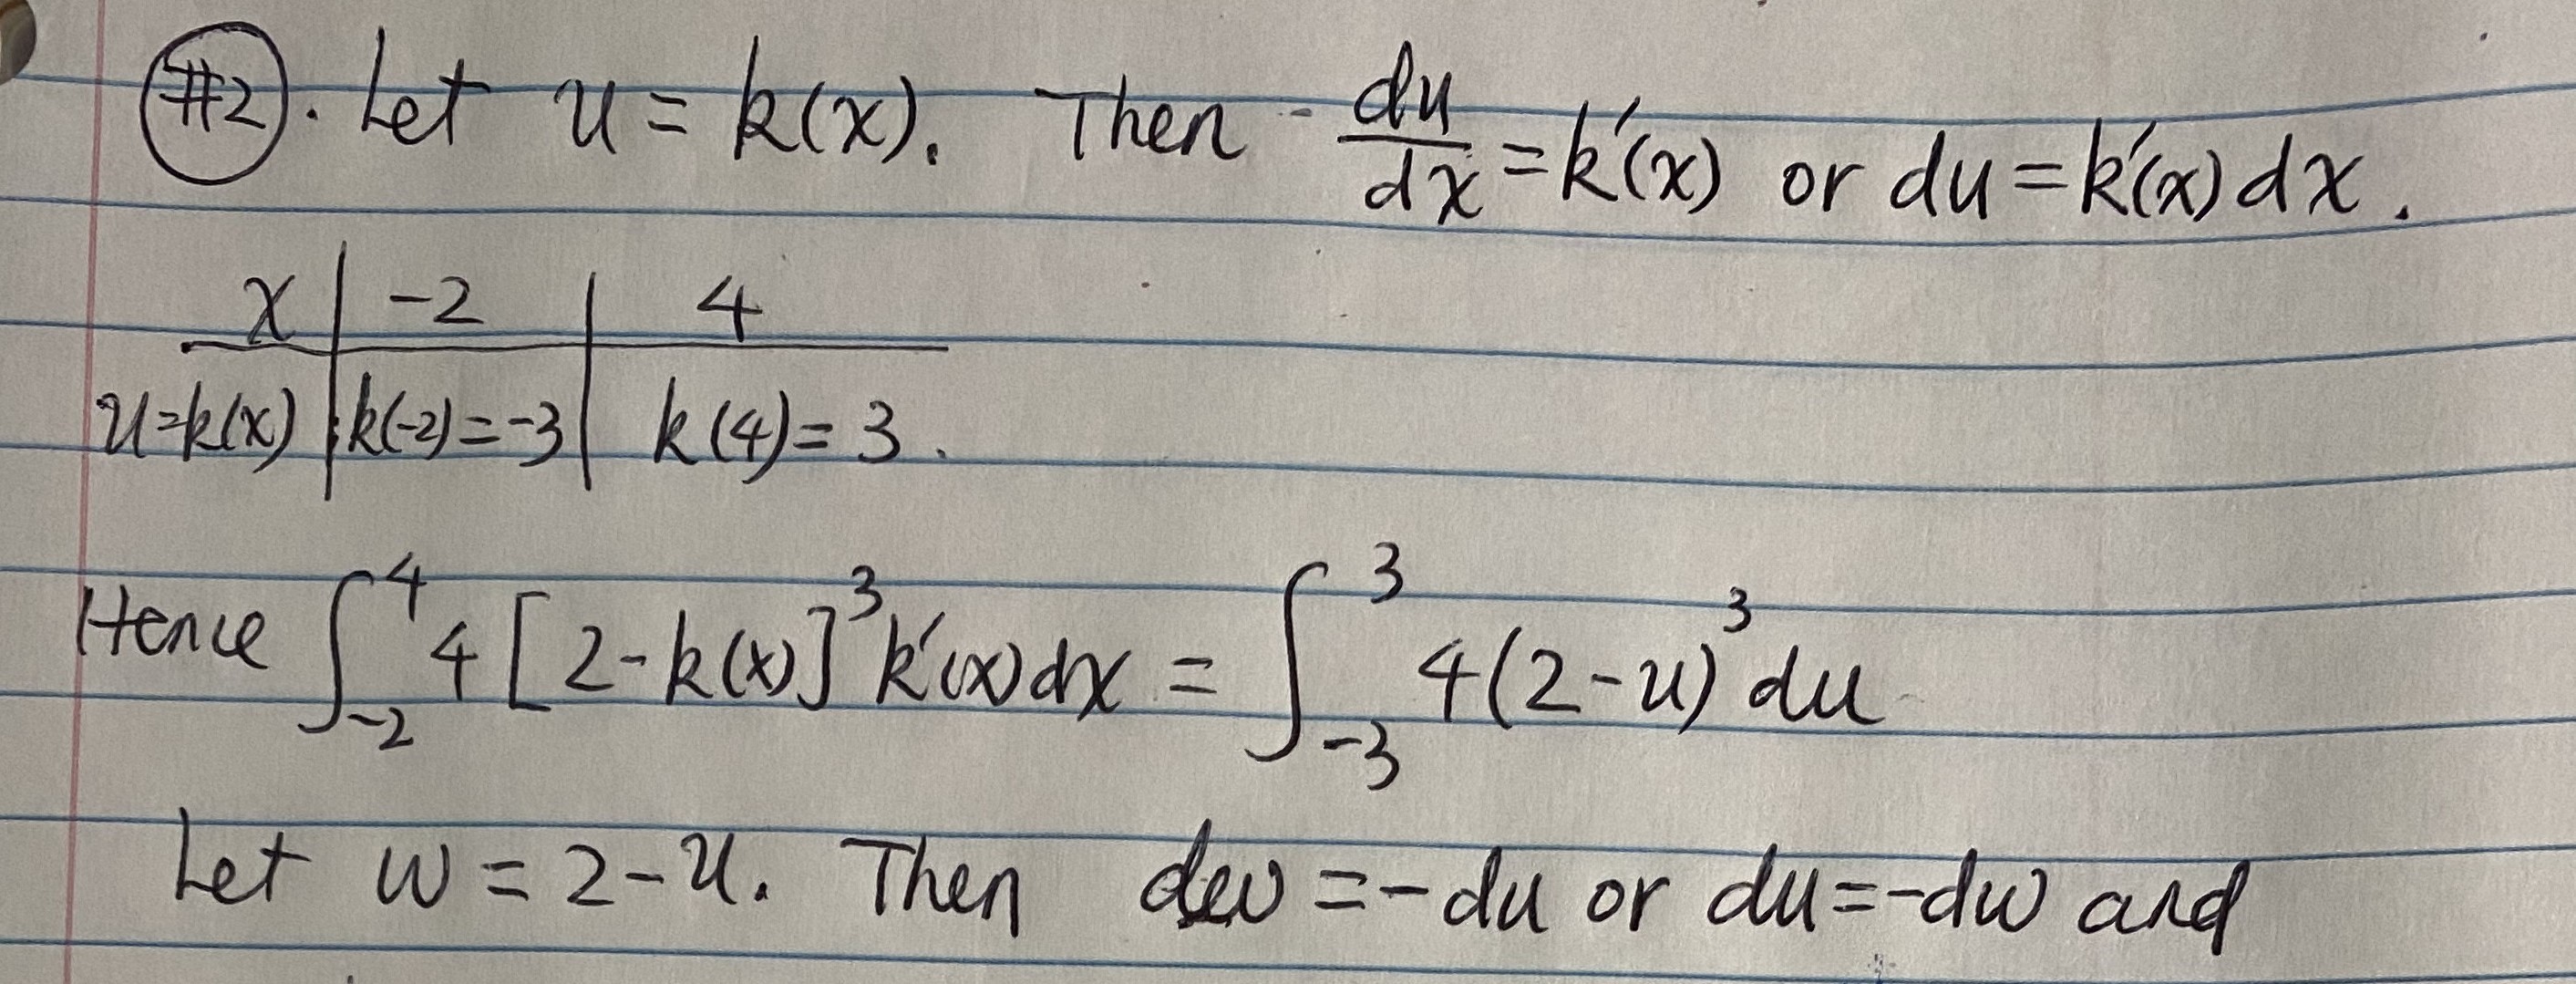 #2. Let u = k(x). Then du/dx = k'(x) or du = k'(x) dx.
x | -2 | 4
u=k(x) | k(-2)=-3 | k(4)=3.
Hence ∫_{-2}^{4} 4[2-k(x)]^3 k'(x) dx = ∫_{-3}^{3} 4(2-u)^3 du
Let w = 2-u. Then dw = -du or du = -dw and